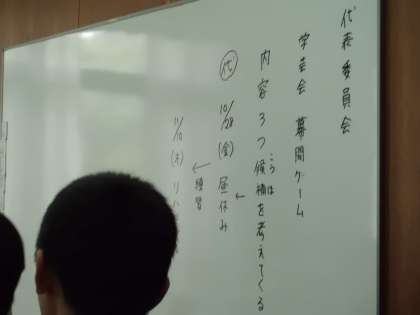 代表委員会
学芸会 幕間ゲーム
内容 3つ候補を考えてくる
こうほ
代 10/28 (金) 昼休み
↓
練習
↓
11/10 (木) リハ